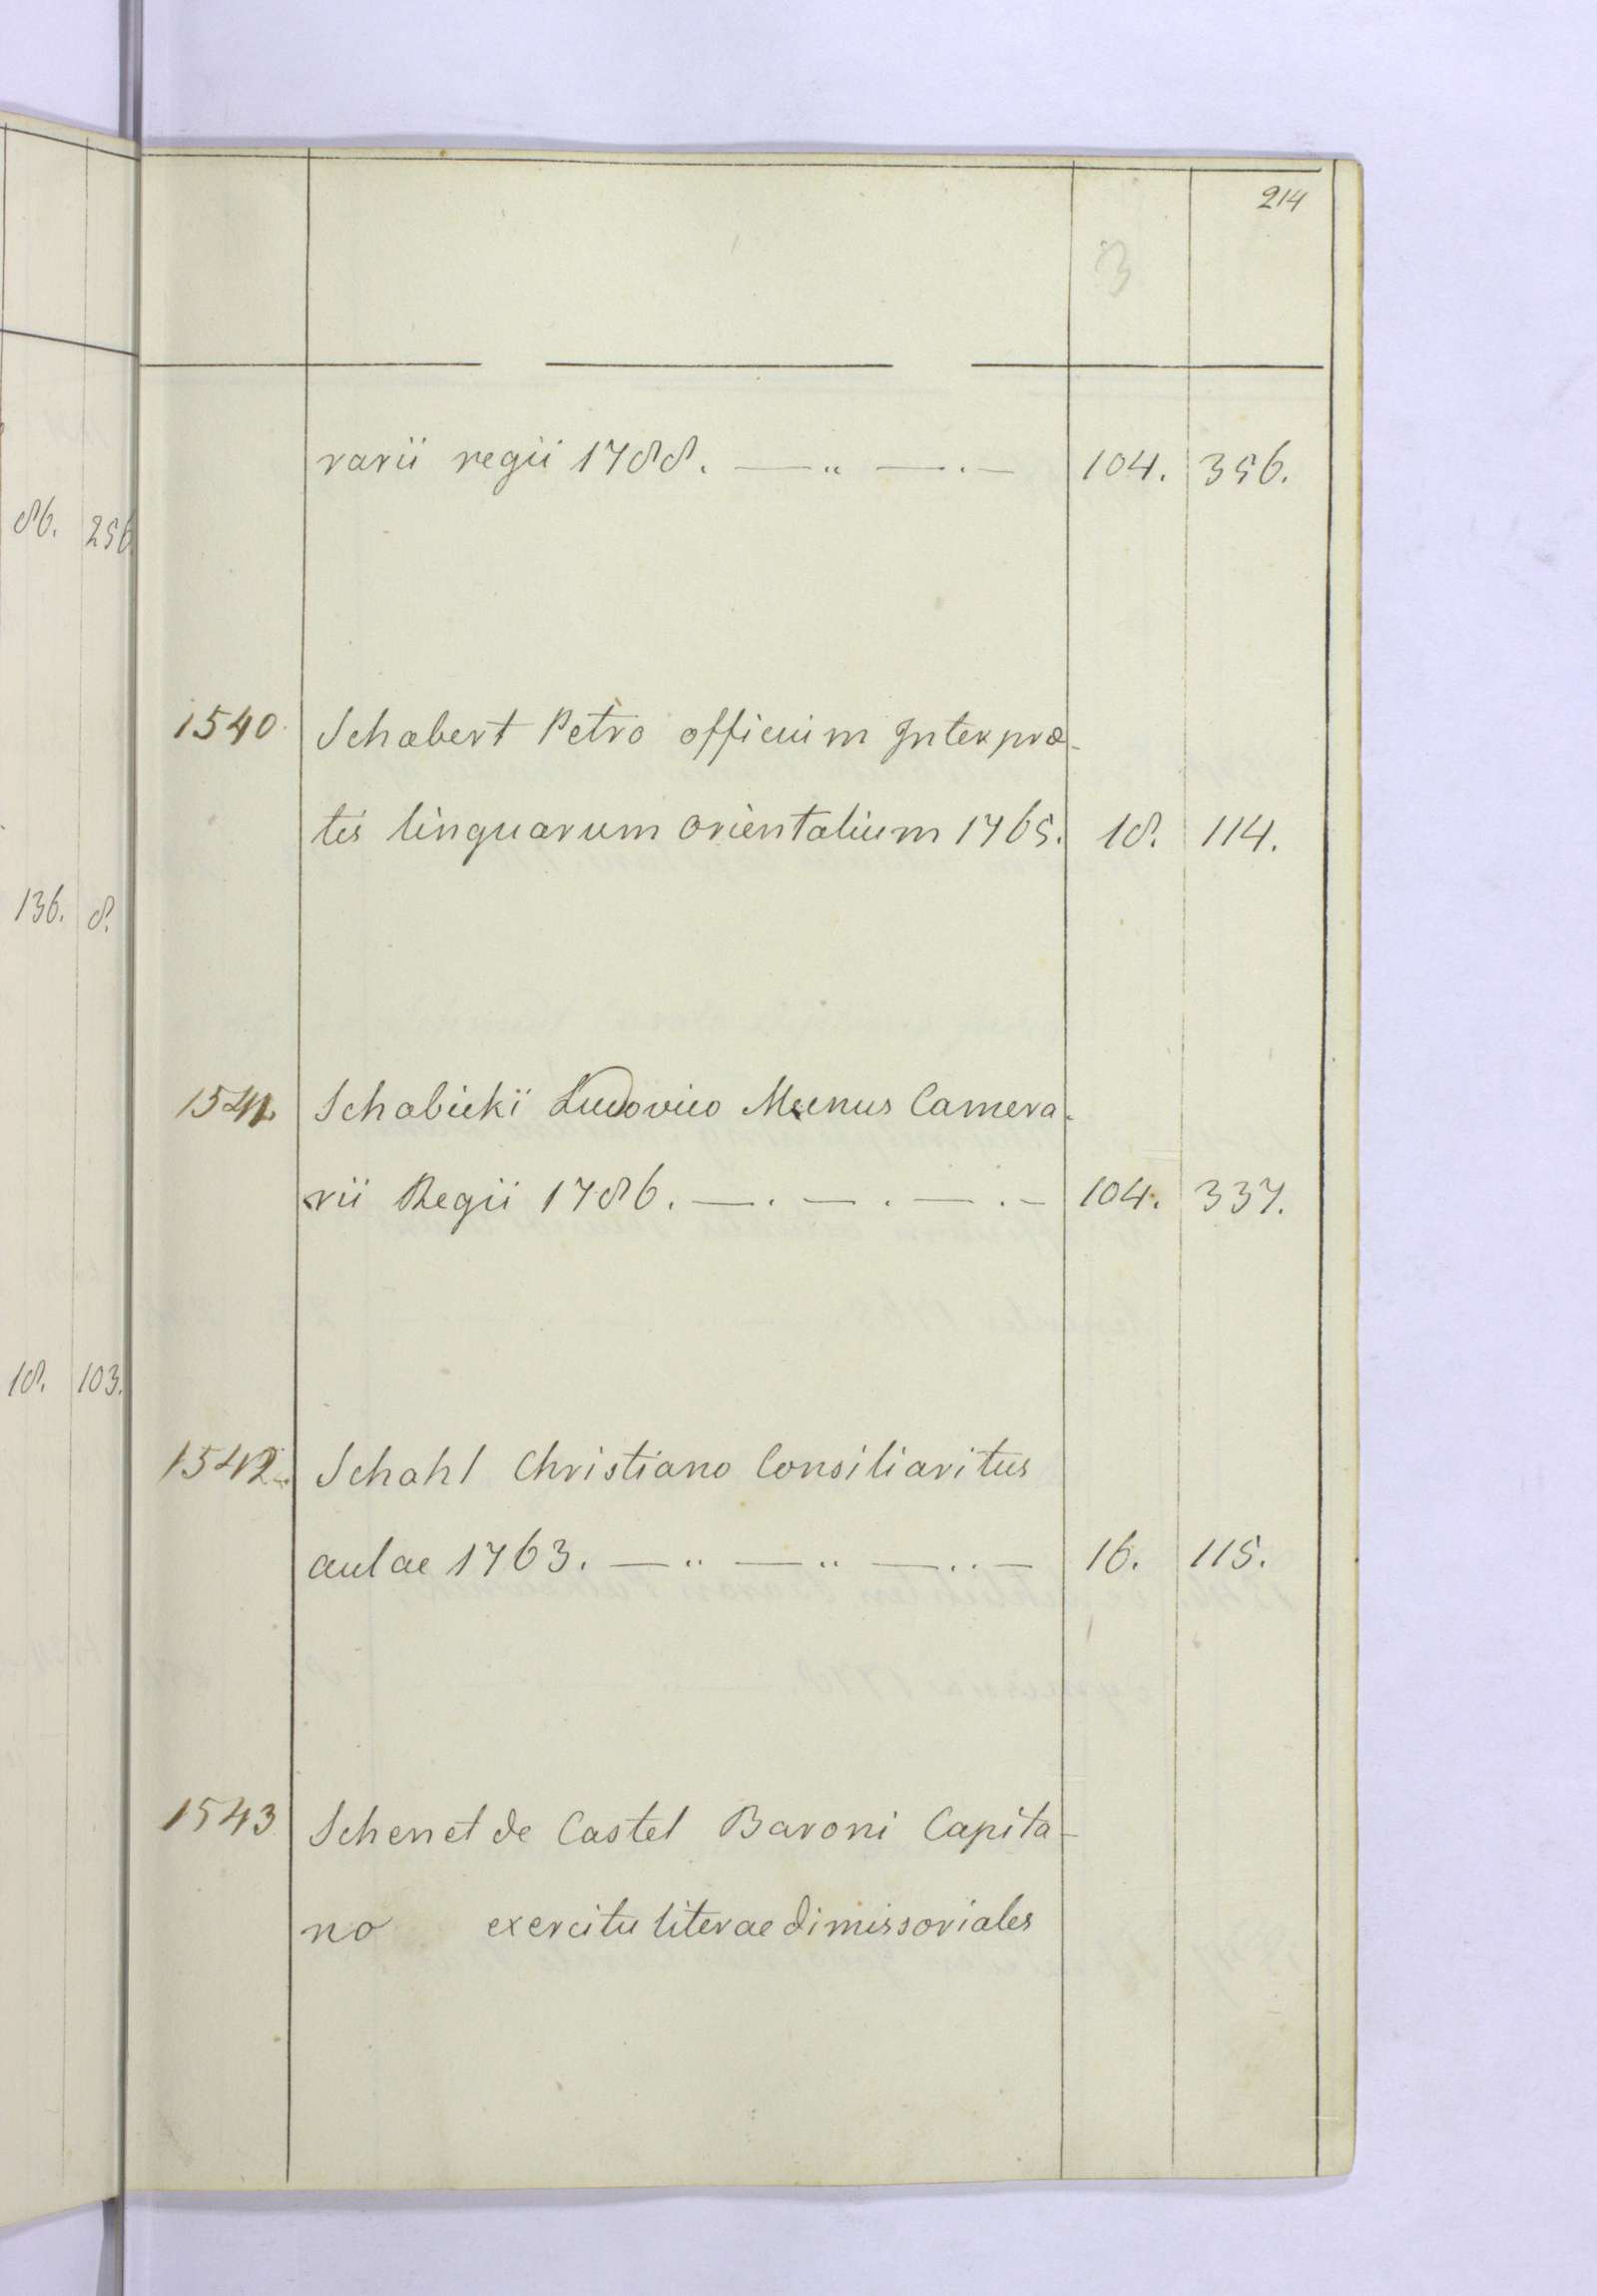 214
3
rarii regii 1788. — „ — . — 104. 356.
86. 256.
1540. Schabert Petro officium Interpræ-
tis linguarum orientalium 1765. 18. 114.
136. 8.
1541. Schabicki Ludovico Munus Camera-
rii Regii 1786. — . — . — . — 104. 337.
18. 103.
1542. Schahl Christiano Consiliaritus
aulae 1763. — „ — „ — .. — 16. 115.
1543 Schenet de Castel Baroni Capita-
no exercitu literae dimissoriales